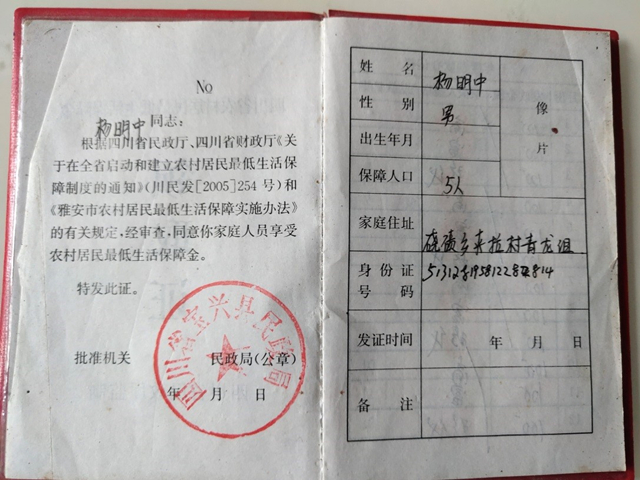 No
杨明中同志：
根据四川省民政厅、四川省财政厅《关
于在全省启动和建立农村居民最低生活保
障制度的通知》(川民发[2005]254号)和
《雅安市农村居民最低生活保障实施办法》
的有关规定，经审查，同意你家庭人员享受
农村居民最低生活保障金。
特发此证。
四川省宝兴县民政局
批准机关 民政局(公章)
年 月 日
姓名 杨明中
性别 男
像片
出生年月
保障人口 5人
家庭住址 硗碛乡夹拉村青龙组
身份证号码
发证时间 年 月 日
备注